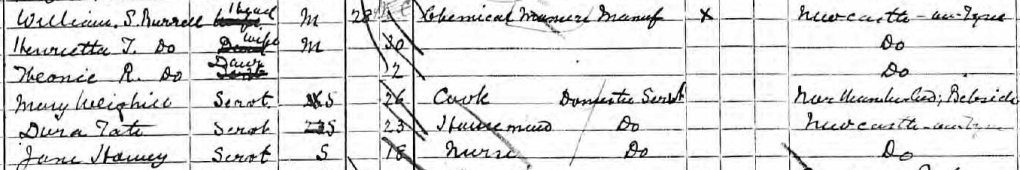 William S. Burrell Head M 28 Chemical Manure Manuf X Newcastle-on-Tyne
Henrietta T. Do Wife M 30 Do
Theonie R. Do Daur 2 Do
Mary Weighill Servt. S 26 Cook Domestic Servt Northumberland; Bebside
Dora Tate Servt. S 23 Housemaid Do Newcastle-on-Tyne
Jane Harvey Servt S 18 Nurse Do Do